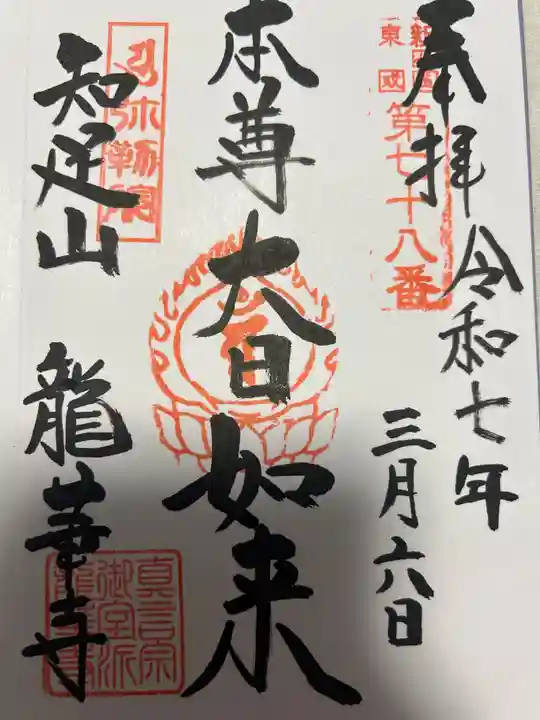 奉拝
令和七年
三月六日
新四国
東國
第七十八番
本尊 大日如来
弥勒院
知足山 龍華寺
真言宗
御室派
龍華寺